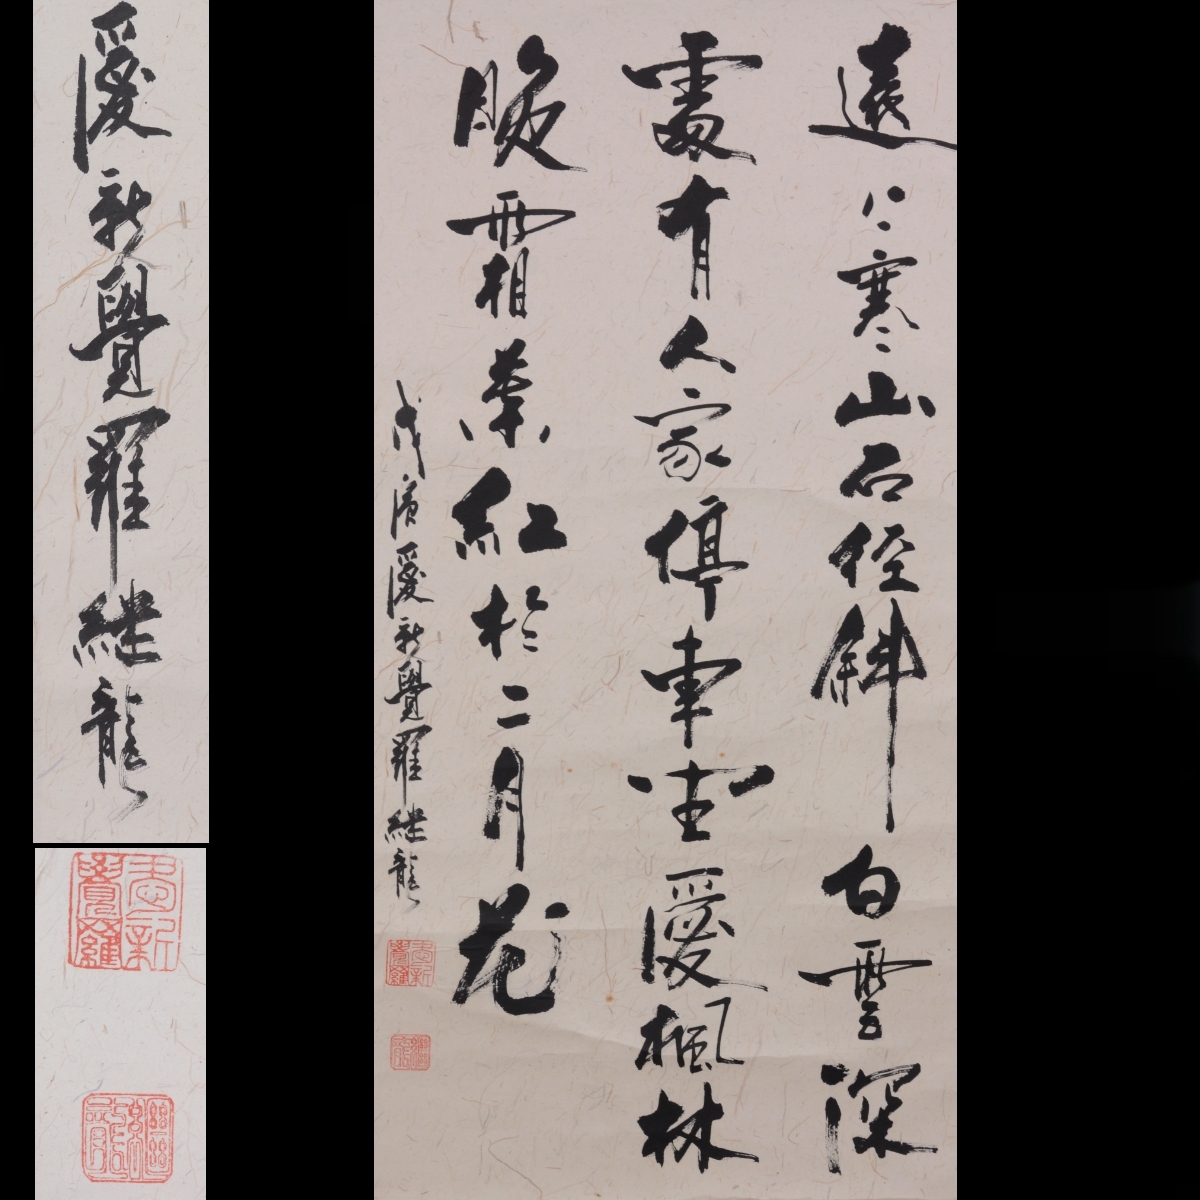 遠上寒山石径斜白雲深
處有人家停車坐愛楓林
晚霜葉紅於二月花
戊寅愛新覺羅継龍
愛新覺羅
繼龍
愛新覺羅継龍
愛新覺羅
繼龍